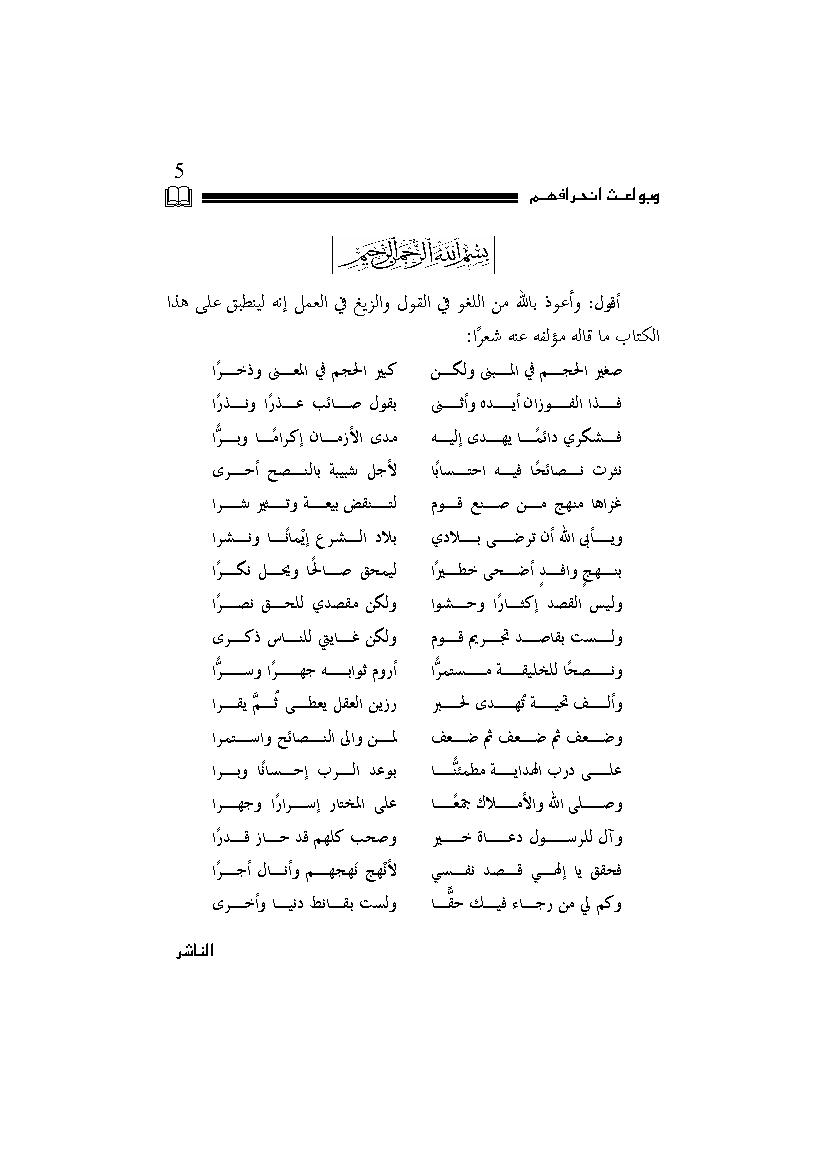 5
وبواعث انحرافهم
بسم الله الرحمن الرحيم
أقول: وأعوذ بالله من اللغو في القول والزيغ في العمل إنه لينطبق على هذا
الكتاب ما قاله مؤلفه عنه شعرًا:
صغير الحجم في المبنى ولكن كبير الحجم في المعنى وذخرًا
فذا الفوزان أيده وأثنى بقول صائب عذرًا ونذرًا
فشكري دائمًا يهدى إليه مدى الأزمان إكرامًا وبرًّا
نثرت نصائحًا فيه احتسابًا لأجل شبيبة بالنصح أحرى
غزاها منهج من صنع قوم لتنقض بيعة وتثير شرا
ويأبى الله أن ترضى بلادي بلاد الشرع إيْمانًا ونشرا
بنهجٍ وافدٍ أضحى خطيرًا ليمحق صالحًا ويحل نكرًا
وليس القصد إكثارًا وحشوا ولكن مقصدي للحق نصرًا
ولست بقاصد تجريم قوم ولكن غايتي للناس ذكرى
ونصحًا للخليقة مستمرًّا أروم ثوابه جهرًا وسرًّا
وألف تحية تُهدى لحبر رزين العقل يعطى ثُمَّ يقرا
وضعف ثم ضعف ثم ضعف لمن والى النصائح واستمرا
على درب الهداية مطمئنًّا بوعد الرب إحسانًا وبرا
وصلى الله والأملاك جمعًا على المختار إسرارًا وجهرا
وآل للرسول دعاة خير وصحب كلهم قد حاز قدرًا
فحقق يا إلهي قصد نفسي لأنْهج نَهجهم وأنال أجرًا
وكم لي من رجاء فيك حقًّا ولست بقانط دنيا وأخرى
الناشر